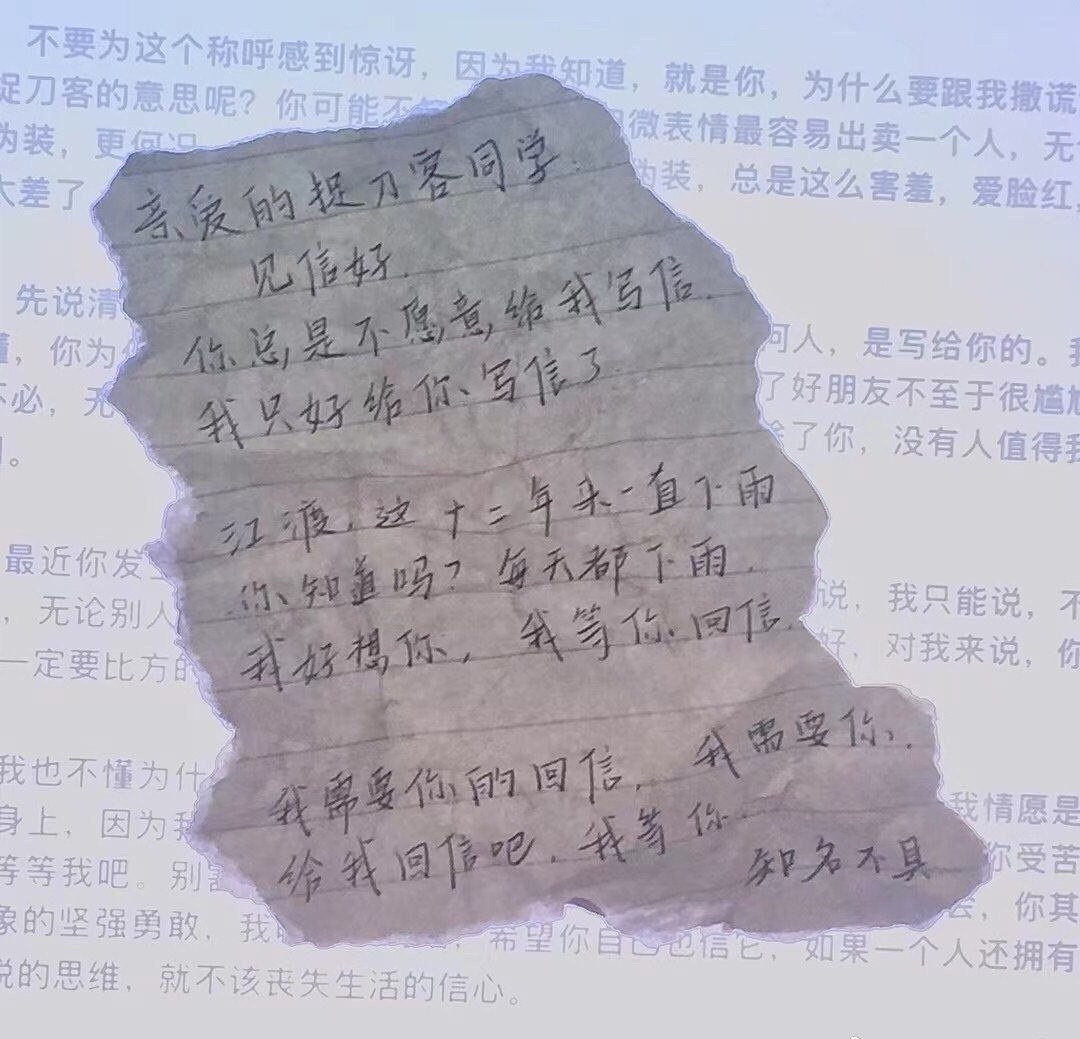 不要为这个称呼感到惊讶，因为我知道，就是你，为什么要跟我撒谎
捉刀客的意思呢？你可能不
微表情最容易出卖一个人，无
伪装，更何况
伪装，总是这么害羞，爱脸红，
太差了
亲爱的捉刀客同学：
见信好.
你总是不愿意给我写信.
我只好给你写信了.
先说清
何人，是写给你的。我
懂，你为什
了好朋友不至于很尴尬
不必，无
了你，没有人值得我
江渡，这十二年来一直下雨
你知道吗？每天都下雨.
我好想你，我等你回信.
最近你发生
说，我只能说，不
，无论别人
好，对我来说，你
一定要比方的
我需要你的回信，我需要你.
给我回信吧，我等你.
知名不具
我也不懂为什么
我情愿是
身上，因为我
你受苦
等等我吧。别害
会，你其
象的坚强勇敢，我
希望你自己也信它，如果一个人还拥有
说的思维，就不该丧失生活的信心。